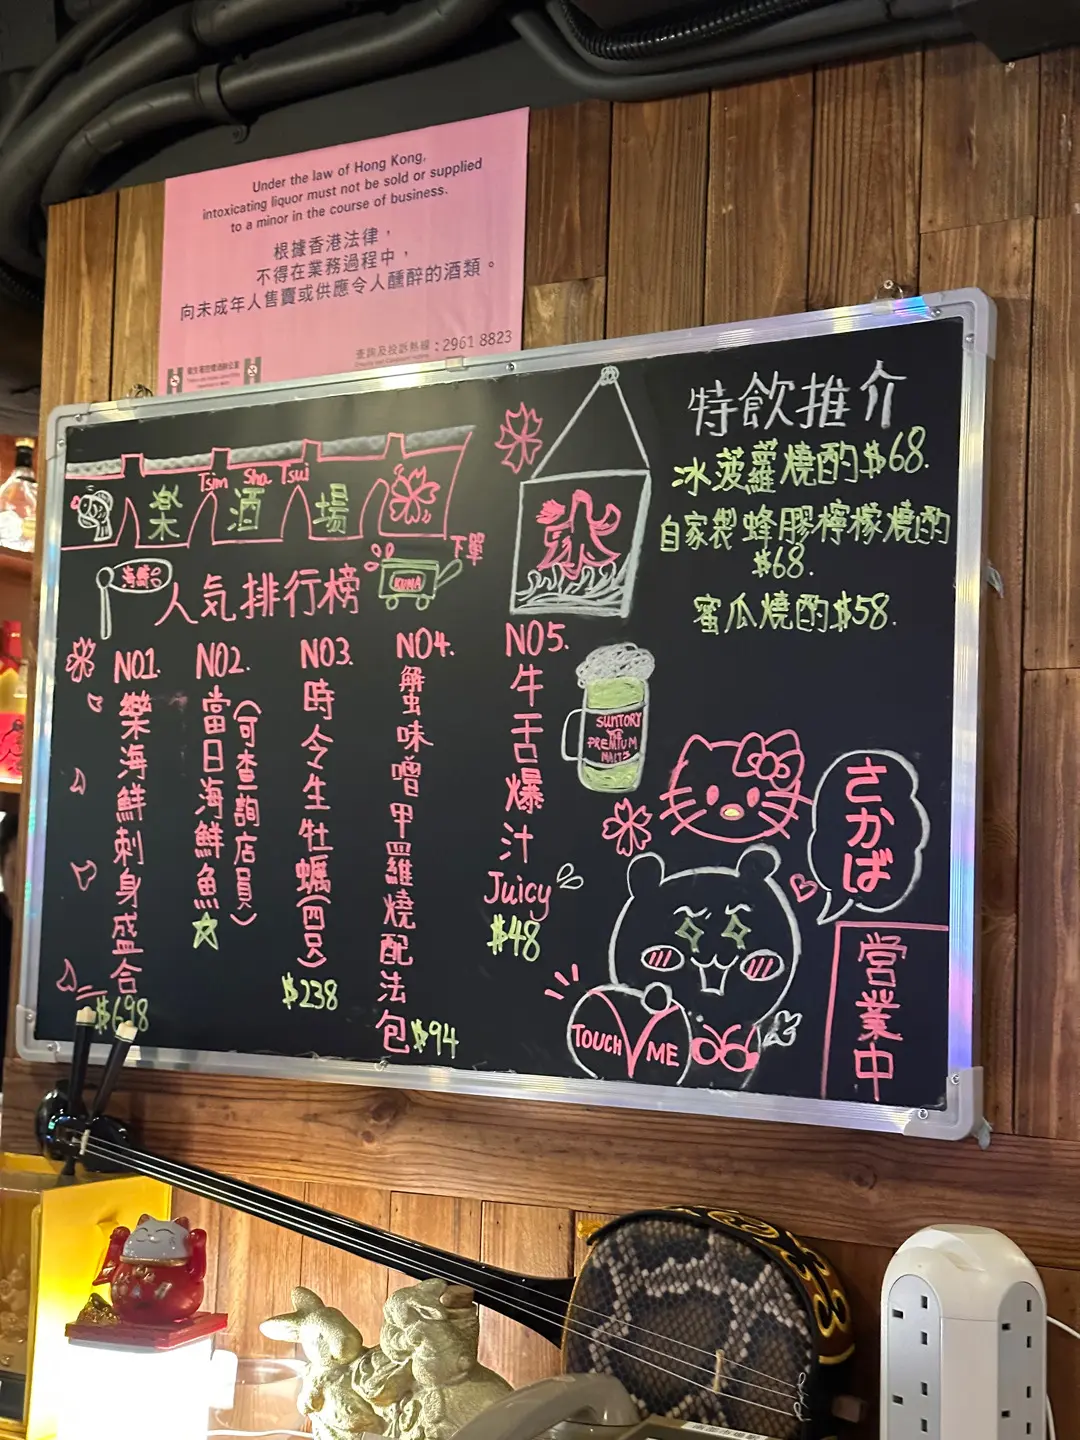 Under the law of Hong Kong,
intoxicating liquor must not be sold or supplied
to a minor in the course of business.
根據香港法律，
不得在業務過程中，
向未成年人售賣或供應令人醺醉的酒類。
查詢及投訴熱線：2961 8823
Tsim Sha Tsui
楽酒場
人気排行榜
KUMA
下單
NO1.
樂海鮮刺身盛合
$698
NO2.
當日海鮮魚
(可查詢店員)
NO3.
時令生牡蠣(四只)
$238
NO4.
蟹味噌甲羅燒配法包
$94
NO5.
牛舌爆汁
Juicy
$48
SUNTORY
THE
PREMIUM
MALTS
特飲推介
冰菠蘿燒酌$68.
自家製蜂膠檸檬燒酌
$68.
蜜瓜燒酌$58.
さかば
営業中
TOUCH ME